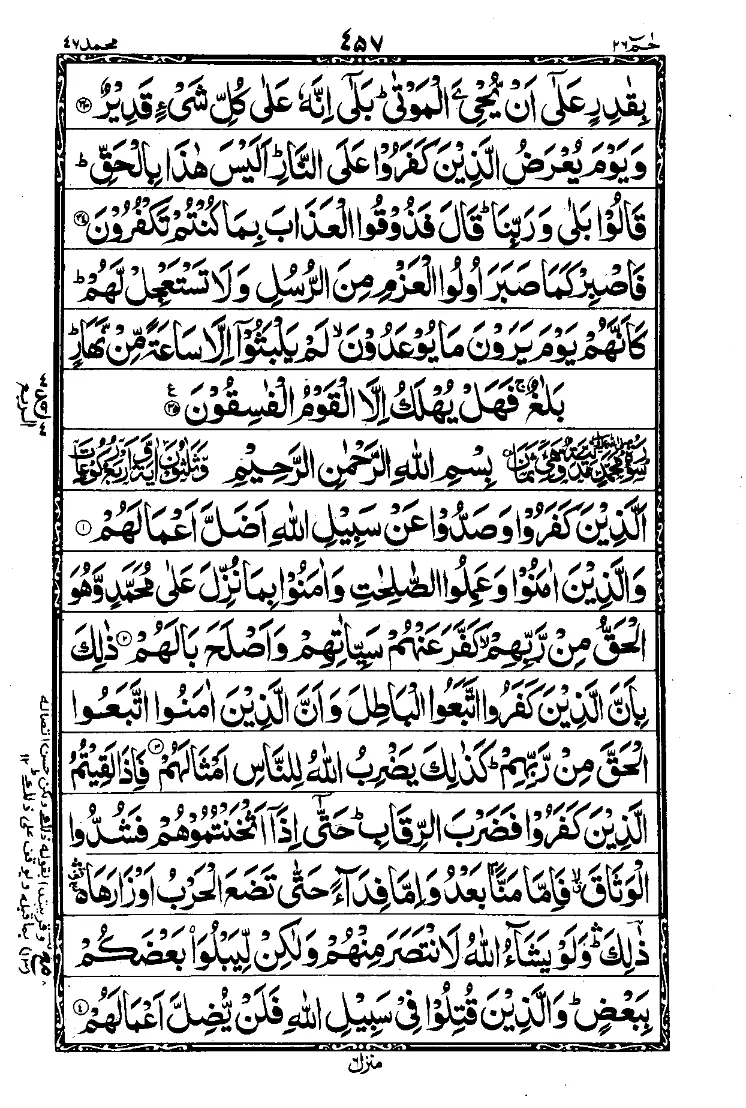 حٰمٓ ٢٦
٤٥٧
محمد ٤٧
بِقٰدِرٍ عَلٰۤى اَنْ يُّحْیِۦَ الْمَوْتٰى ؕ بَلٰۤى اِنَّهٗ عَلٰى كُلِّ شَیْءٍ قَدِيْرٌ ﴿۳۳﴾
وَ يَوْمَ يُعْرَضُ الَّذِيْنَ كَفَرُوْا عَلَى النَّارِ ؕ اَلَيْسَ هٰذَا بِالْحَقِّ ؕ
قَالُوْا بَلٰى وَ رَبِّنَا ؕ قَالَ فَذُوْقُوا الْعَذَابَ بِمَا كُنْتُمْ تَكْفُرُوْنَ ﴿۳۴﴾
فَاصْبِرْ كَمَا صَبَرَ اُولُوا الْعَزْمِ مِنَ الرُّسُلِ وَ لَا تَسْتَعْجِلْ لَّهُمْ ؕ
كَاَنَّهُمْ يَوْمَ يَرَوْنَ مَا يُوْعَدُوْنَ ۙ لَمْ يَلْبَثُوْۤا اِلَّا سَاعَةً مِّنْ نَّهَارٍ ؕ
بَلٰغٌ ۚ فَهَلْ يُهْلَكُ اِلَّا الْقَوْمُ الْفٰسِقُوْنَ ﴿۳۵﴾ ع
بِسْمِ اللّٰهِ الرَّحْمٰنِ الرَّحِيْمِ
اَلَّذِيْنَ كَفَرُوْا وَ صَدُّوْا عَنْ سَبِيْلِ اللّٰهِ اَضَلَّ اَعْمَالَهُمْ ﴿۱﴾
وَ الَّذِيْنَ اٰمَنُوْا وَ عَمِلُوا الصّٰلِحٰتِ وَ اٰمَنُوْا بِمَا نُزِّلَ عَلٰى مُحَمَّدٍ وَّ هُوَ
الْحَقُّ مِنْ رَّبِّهِمْ ۙ كَفَّرَ عَنْهُمْ سَيِّاٰتِهِمْ وَ اَصْلَحَ بَالَهُمْ ﴿۲﴾ ذٰلِكَ
بِاَنَّ الَّذِيْنَ كَفَرُوا اتَّبَعُوا الْبَاطِلَ وَ اَنَّ الَّذِيْنَ اٰمَنُوا اتَّبَعُوا
الْحَقَّ مِنْ رَّبِّهِمْ ؕ كَذٰلِكَ يَضْرِبُ اللّٰهُ لِلنَّاسِ اَمْثَالَهُمْ ﴿۳﴾ فَاِذَا لَقِيْتُمُ
الَّذِيْنَ كَفَرُوْا فَضَرْبَ الرِّقَابِ ؕ حَتّٰۤى اِذَاۤ اَثْخَنْتُمُوْهُمْ فَشُدُّوا
الْوَثَاقَ ۙ فَاِمَّا مَنًّۢا بَعْدُ وَ اِمَّا فِدَآءً حَتّٰى تَضَعَ الْحَرْبُ اَوْزَارَهَا
ذٰلِكَ ؕۛ وَ لَوْ يَشَآءُ اللّٰهُ لَانْتَصَرَ مِنْهُمْ وَ لٰكِنْ لِّيَبْلُوَا۠ بَعْضَكُمْ
بِبَعْضٍ ؕ وَ الَّذِيْنَ قُتِلُوْا فِیْ سَبِيْلِ اللّٰهِ فَلَنْ يُّضِلَّ اَعْمَالَهُمْ ﴿۴﴾
منزل ٦